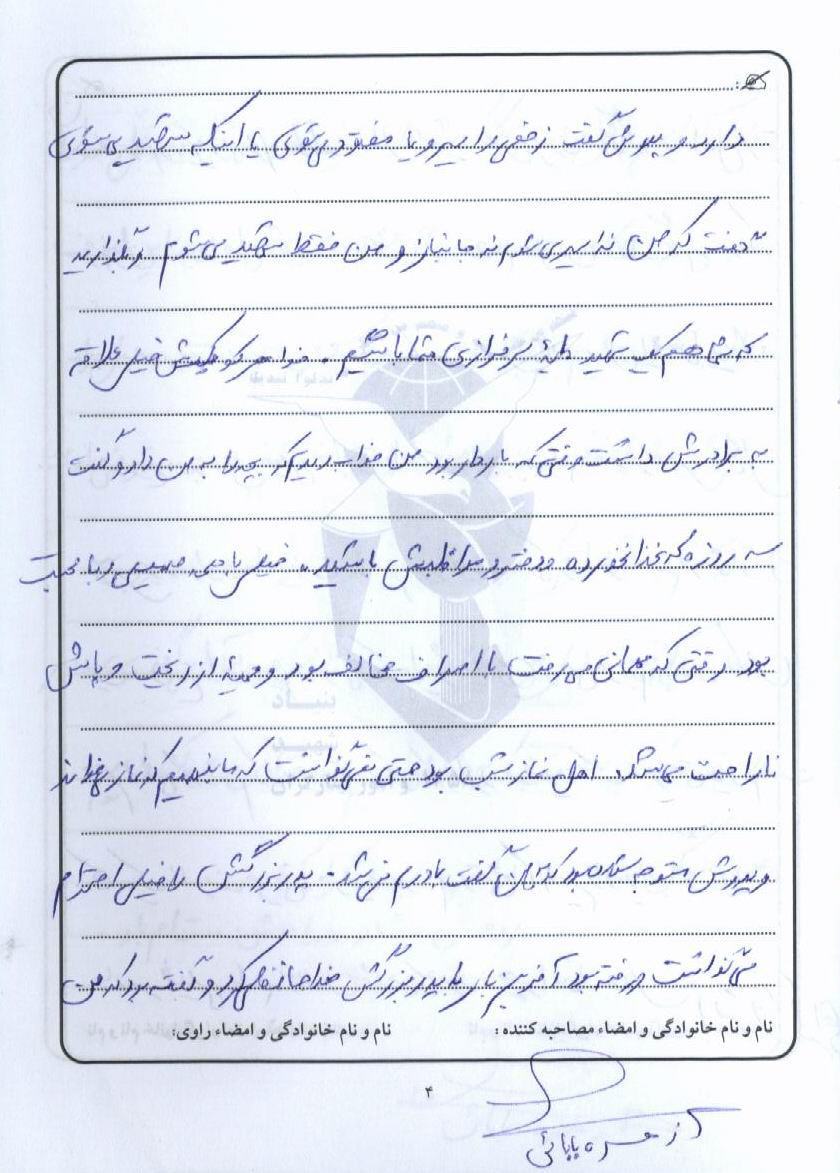 دارد و پدرش گفت زخمی یا اسیر و یا مفقود می‌شوی یا اینکه شهید می‌شوی
گفت که من نه اسیر می‌شوم نه جانباز و من فقط شهید می‌شوم و بگذارید
که ما هم یک شهید مایهٔ سرفرازی شما باشیم . خواهر کوچکش خیلی علاقه
به برادرش داشت وقتی که باردار بود من خواب دیدم که بچه را به من داد و گفت
سه روزه که غذا نخورده و دختر و مواظبش باشید . خیلی با صمیمی و با محبت
بود . وقتی که مهمانی می‌رفت با اسراف مخالف بود و همیشه از ریخت و پاش
ناراحت می‌شد . اهل نماز شب بود حتی نمی‌خواست که ما بفهمیم که نماز می‌خواند
و پدرش متوجه شده بود که به من گفت باورم نمی‌شد . پدربزرگش را خیلی احترام
می‌گذاشت و رفته بود آخرین بار با پدربزرگش خداحافظی کرد و گفته بود که من
نام و نام خانوادگی و امضاء مصاحبه کننده :
نام و نام خانوادگی و امضاء راوی:
۴
بابائی